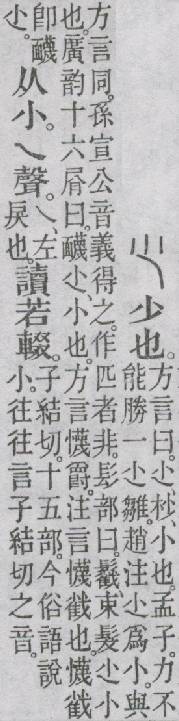 少也。
方言曰。尐杪、小也。孟子。力不
能勝一尐雛。趙注尐爲小。與
方言同。孫宣公音義得之。作匹者非。髟部曰。䰖、束髮尐小
也。廣韵十六屑曰。尐、小也。方言懱爵。注言懱截也。懱截
卽
尐。
从小。乀聲。
乀、左
戾也。
讀若輟。
子結切。十五部。今俗語說
小往往言子結切之音。